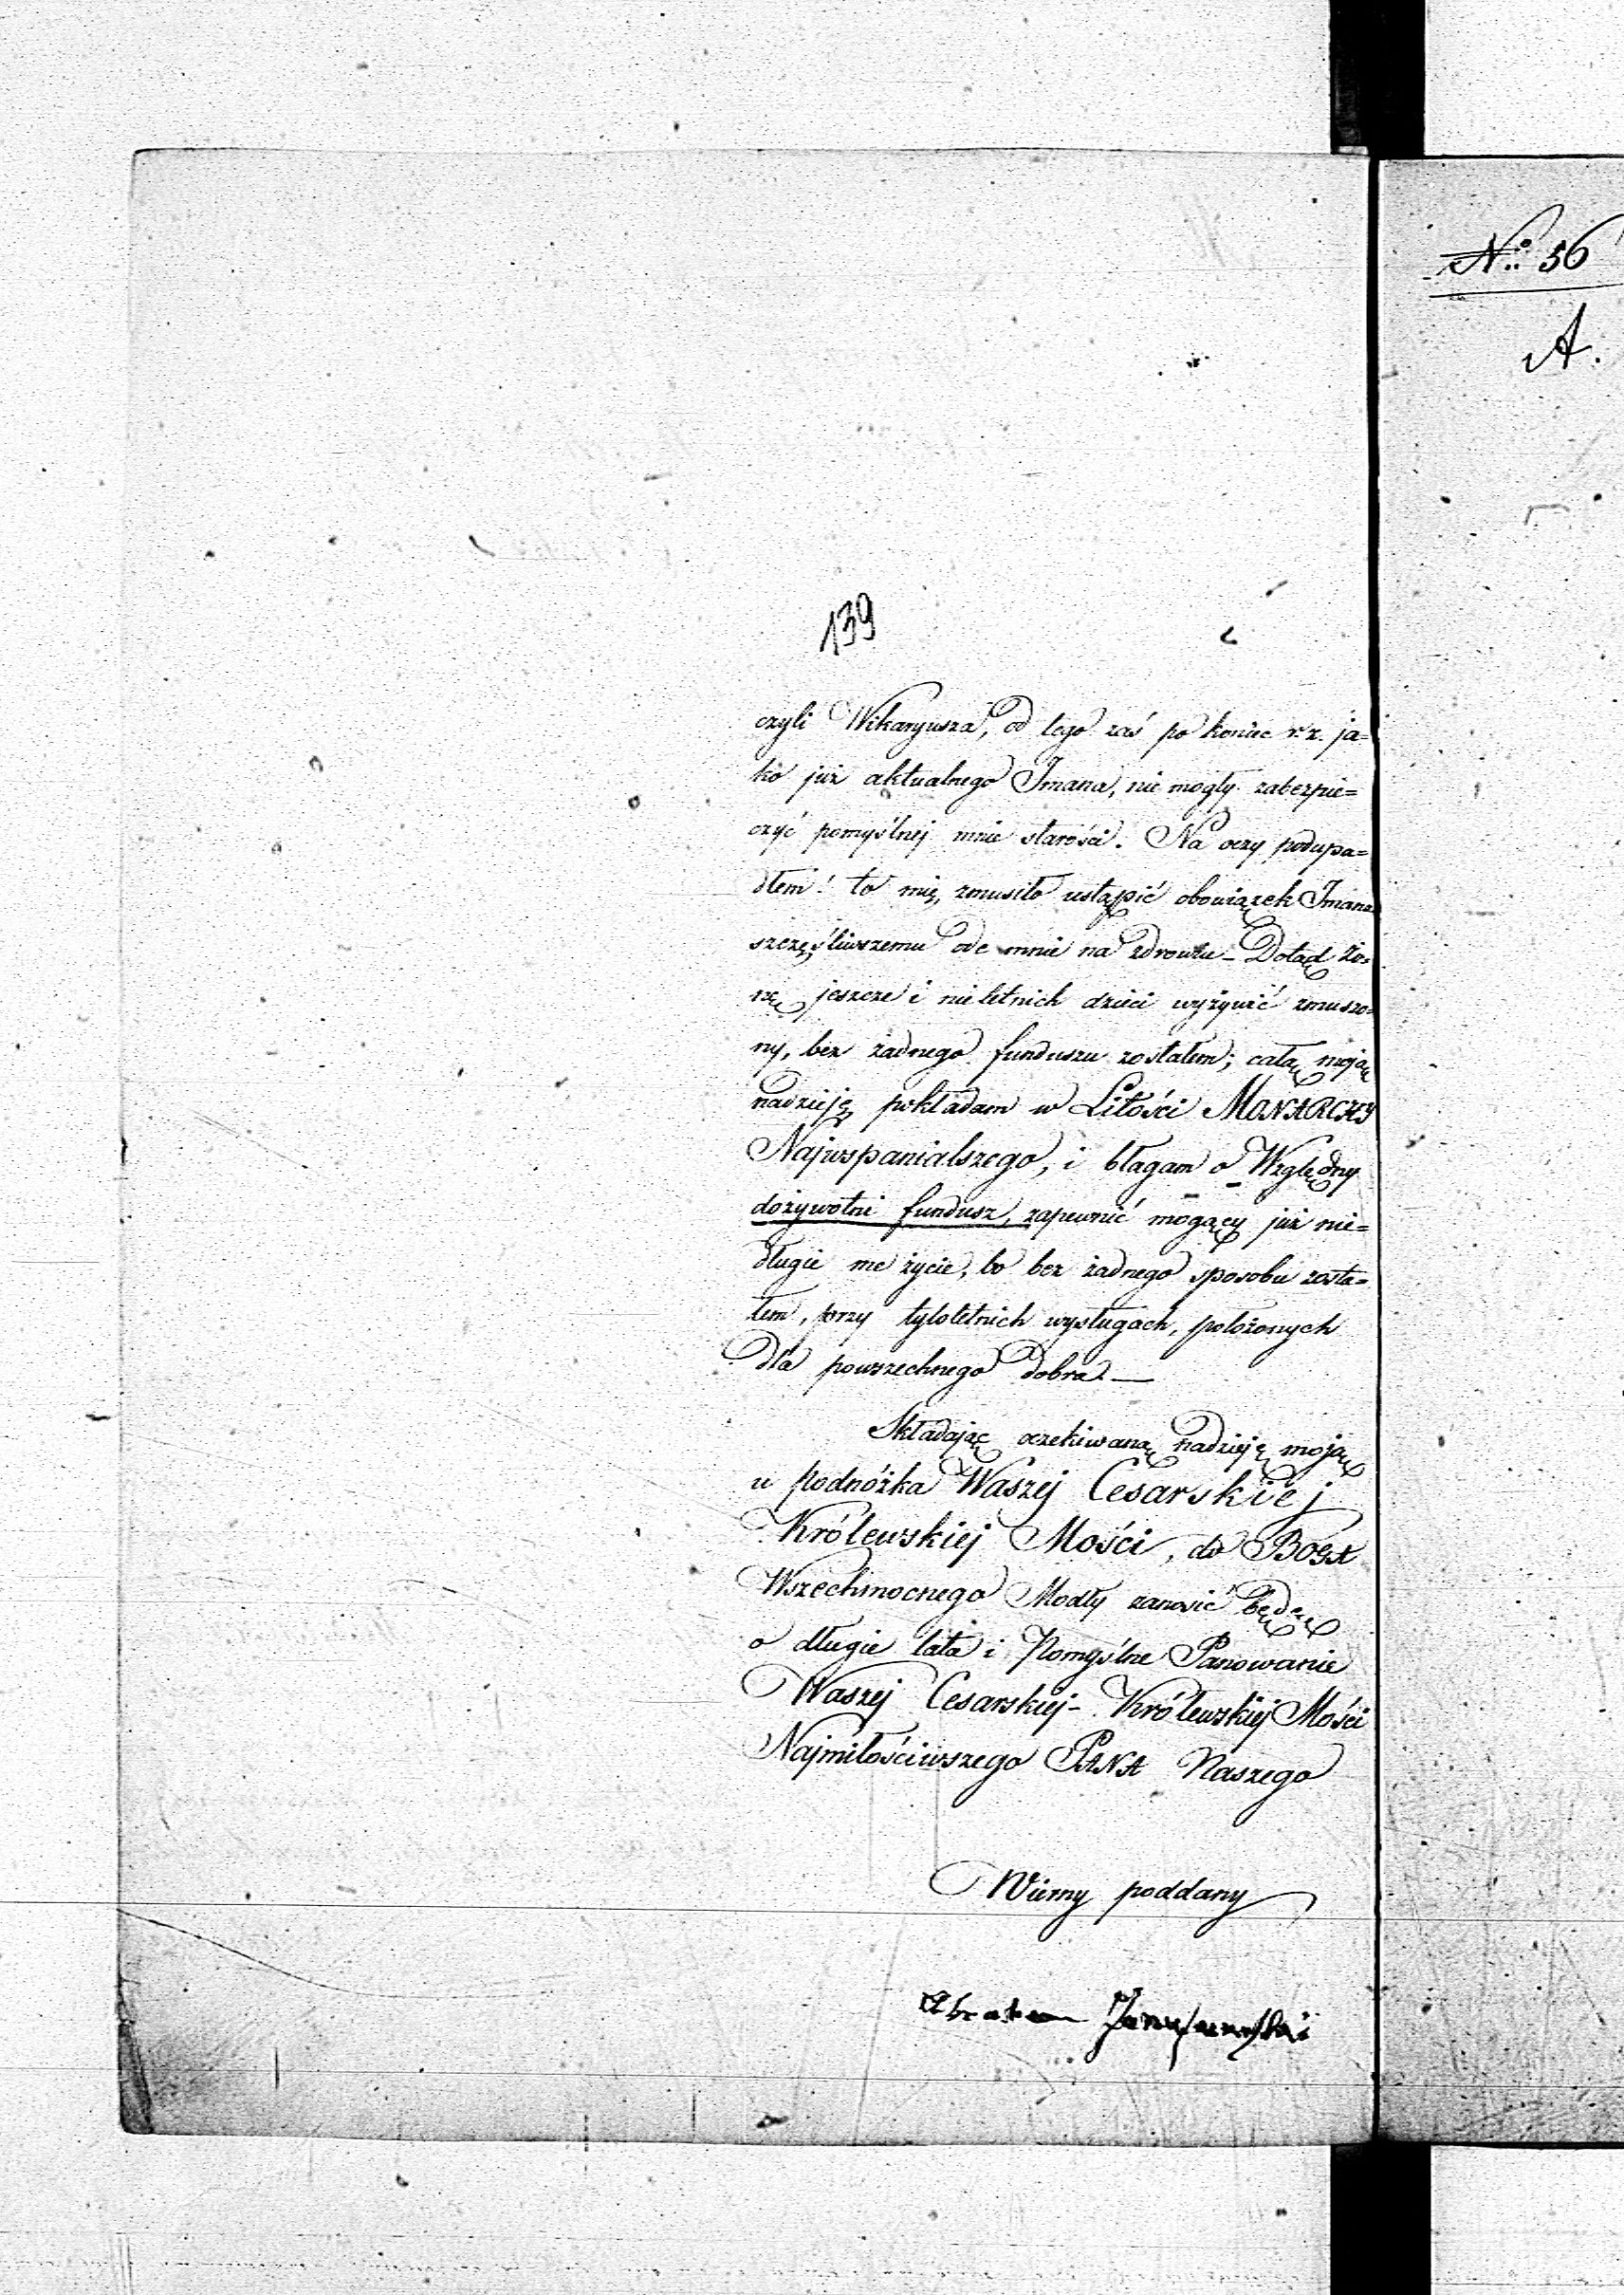 139
czyli Wikaryusza, od tego zaś po koniec r. z. ja=
ko już aktualnego Imana, nie mogły zabezpie=
czyć pomyślnej mnie starości. Na oczy podupa=
dłem! to mię, zmusiło ustąpić obowiązek Imana
szczęśliwszemu ode mnie na zdrowiu – Dotąd żo=
nę jeszcze i nieletnich dzieci wyżywić zmuszo=
ny, bez żadnego funduszu zostałem; całą moją
nadzieję pokładam w Litości MONARCHY
Najwspanialszego, i błagam o Względny
dożywotni fundusz, zapewnić mogący już nie=
długie me życie, bo bez żadnego sposobu zosta=
łem, przy tyloletnich wysługach, położonych
dla powszechnego dobra. —
Składając oczekiwaną nadzieję moją
u podnóżka Waszej Cesarskiej
Królewskiej Mości, do BOGA
Wszechmocnego Modły zanosić będę
o długie lata i Pomyślne Panowanie
Waszej Cesarskiej - Królewskiej Mości
Najmiłościwszego PANA Naszego
Wierny poddany
Abraham
No. 56
A.